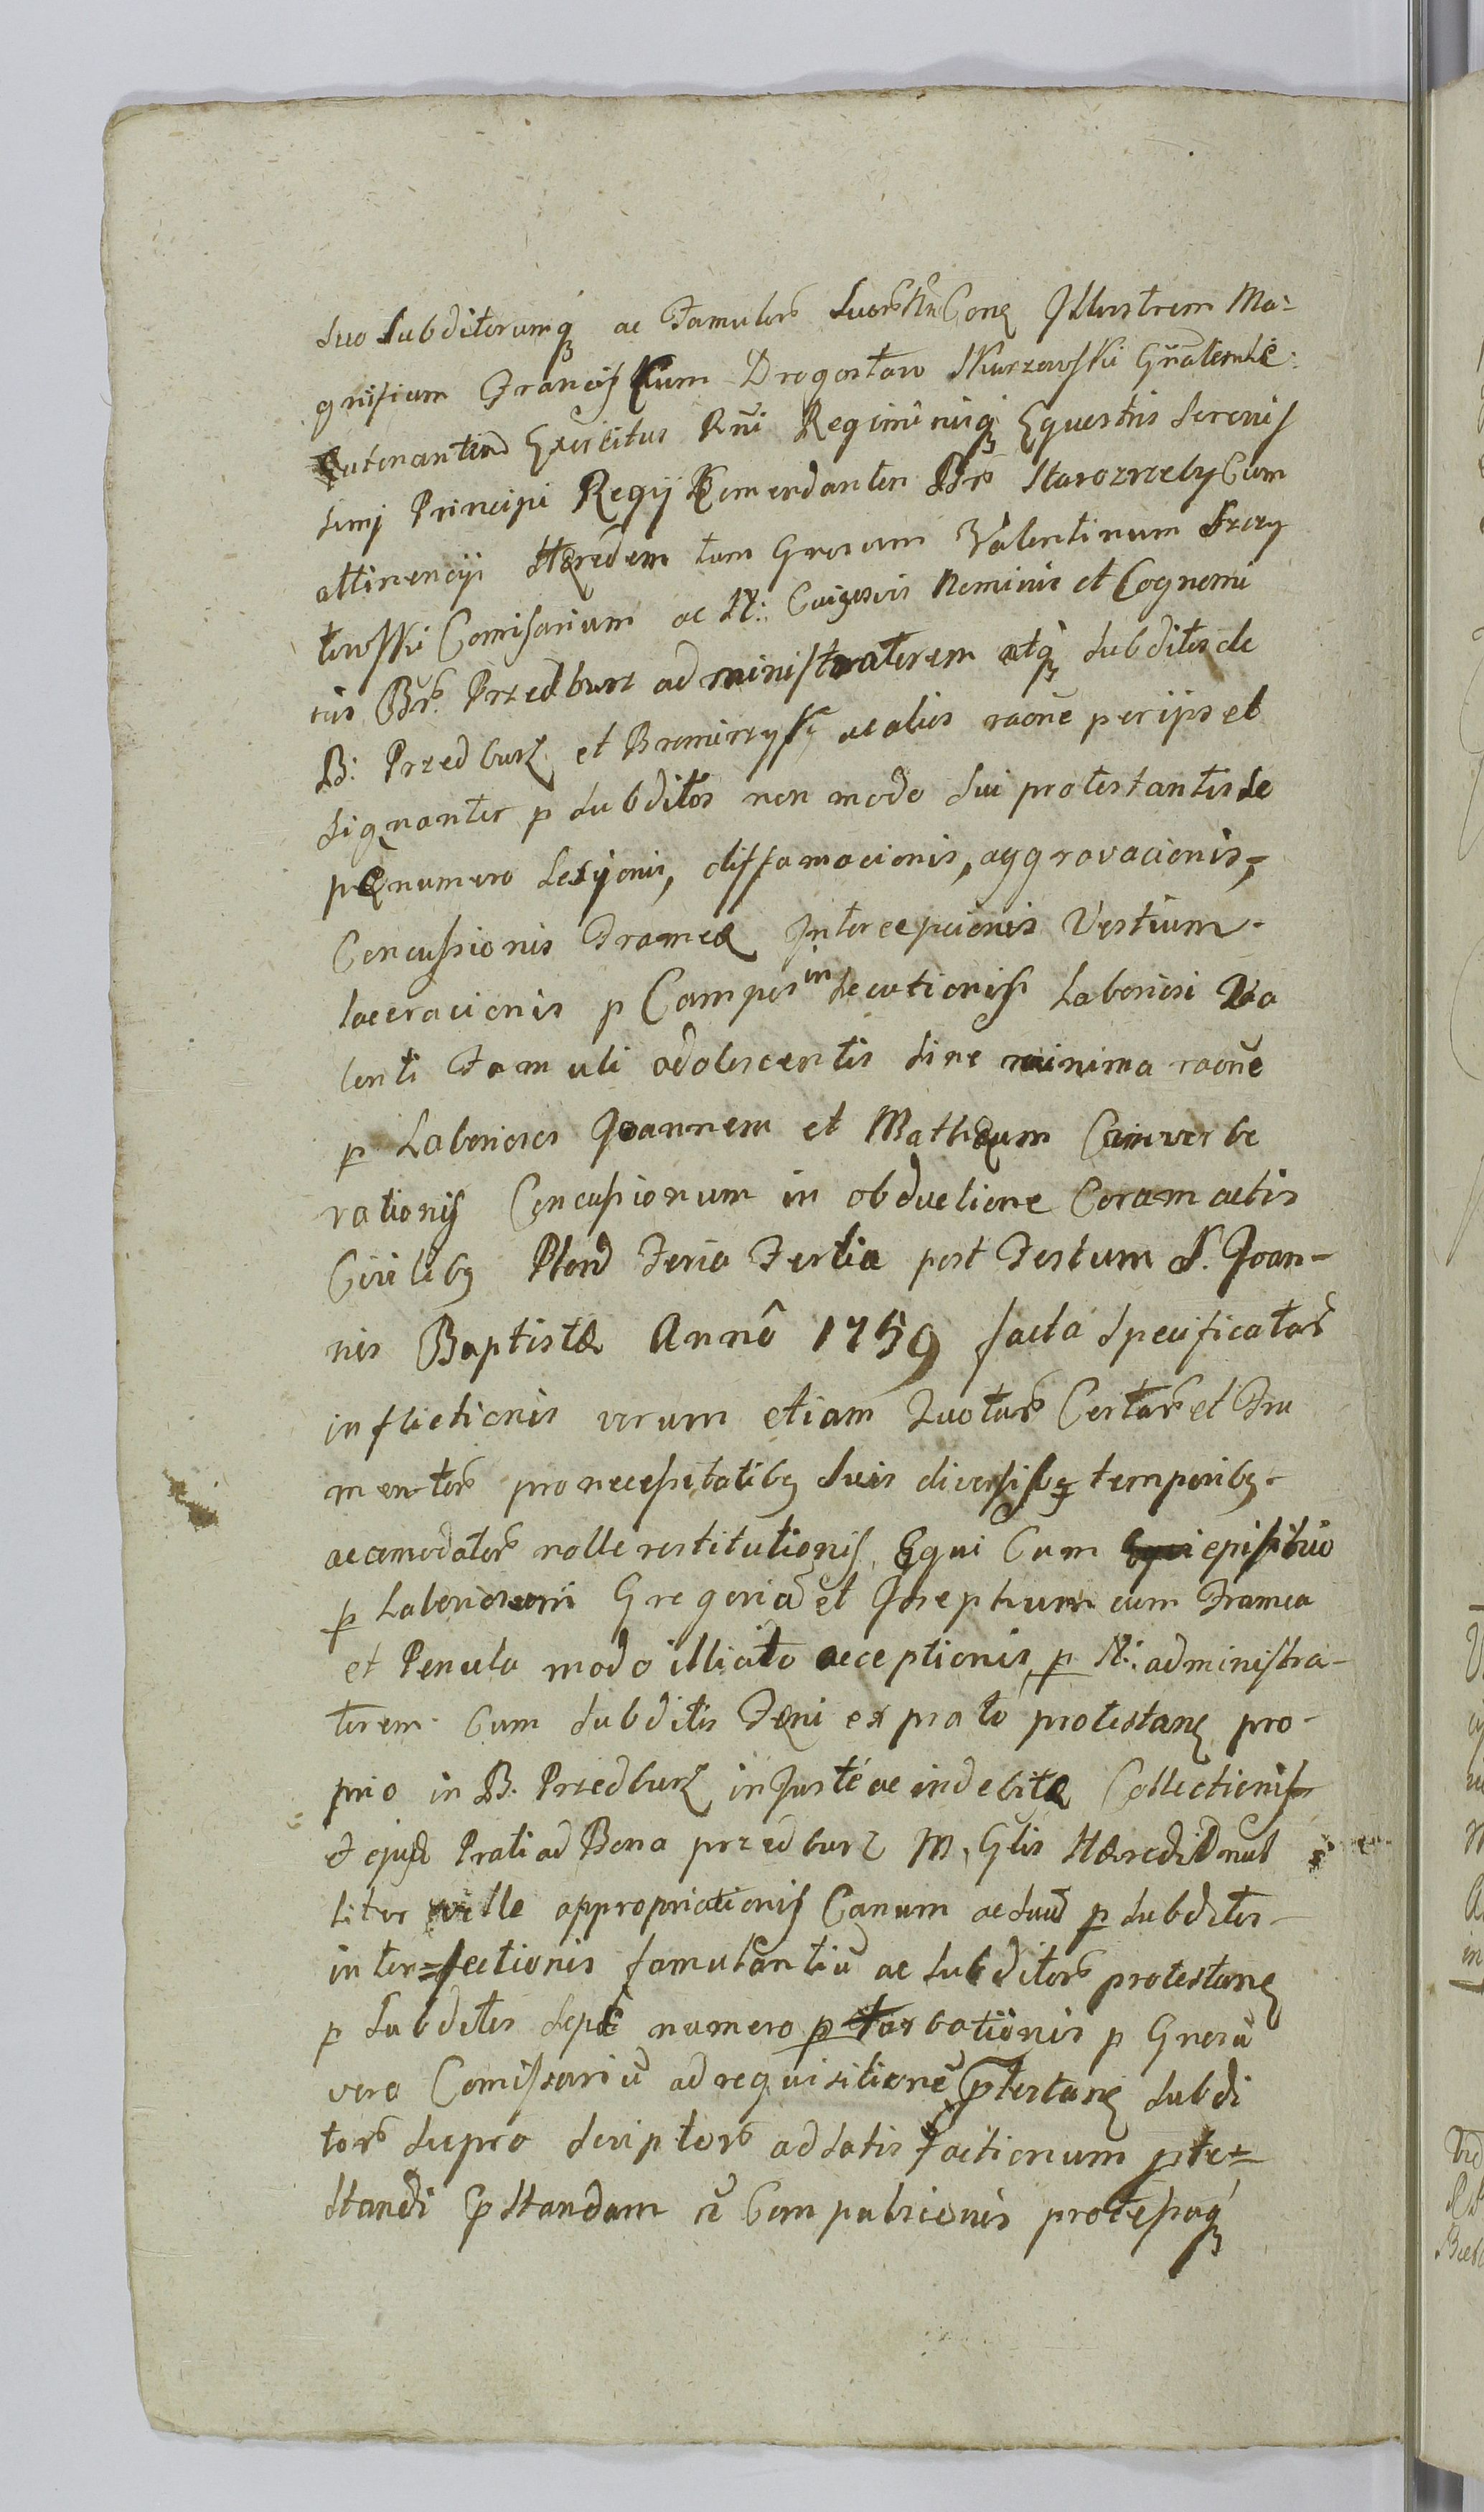 suo subditorumq́ ac Famulorũ suorũ Nr̃ Cong Illustrem Ma-
gnificum Franciscum Drogosław Skurzewski Gñalem Lie-
cutenantem Exercitus Rñi Regiminisq́ Equestris Serenis
simj Principi Regij Komendanten Br̃ Starozrzeby Cum
attinencijs Hæredem tum Grosum Valentinum Szczy
towski Comisarium ac N: Cuiusvis Nominis et Cognomi
nis Br̃. Przedburz administratorem atq́ subditos de
B: Przedburz et Bromirzyk ac alios raone per ipsos et
signanter p subditos non modo sui protestantis sæ
pænumero Lesyonis, diffamacionis, aggravacionis,
Concussionis Frameæ Intercepcionis Vestium
laceracionis p Campos insecutionis Laboriosi Va
lenti Famuli adolescentis sine minima raone
p Laboriosos Joannem et Mathæum Converbe
rationis Concusionum in obductione Coram actis
Civilibg Plond Feria Tertia post Festum S. Joan-
nis Baptistæ Annô 1759 facta specificatarũ
inflictionis verum etiam Quotarũ Certarũ et Fru
mentorũ pro necessitatibg suis diversisq́ temporibg
accomodatorũ nolle restitutionis, Equi Cum epiphio
p Laboriosum Gregoriũ et Josephum cum Framea
et Penula modo illicito acceptionis, p N: administra-
torem Cum subditis Fæni ex prato protestang pro-
prio in B. Przedburz injusté ac indebitæ Collectionis
et ejusd Prati ad Bona przedburz M. Gtis Hæredis nul
liter velle appropriationis Canum ac suũ p subditos
inter=fectionis famulantiũ ac subditorũ protestang
p subditos sepé numero p tur bationis p Grosũ
vero Comissariũ ad requisitionẽ ptestang subdi
torũ supra scriptorũ ad satis factionum pte=
standi pstandam ẽ Compulsionis protessaq́